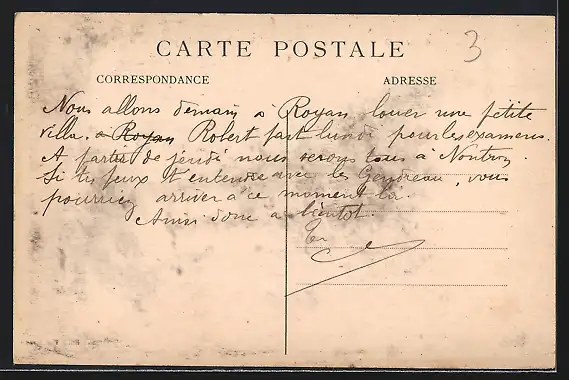 CARTE POSTALE
3
CORRESPONDANCE
ADRESSE
Nous allons demain à Royan louer une petite
villa. à Royan Robert part lundi pour les examens.
A partir de jeudi nous serons tous à Nontron.
Si tu peux t'entendre avec les Gendreau, vous
pourriez arriver à ce moment là.
Ainsi donc à bientôt.